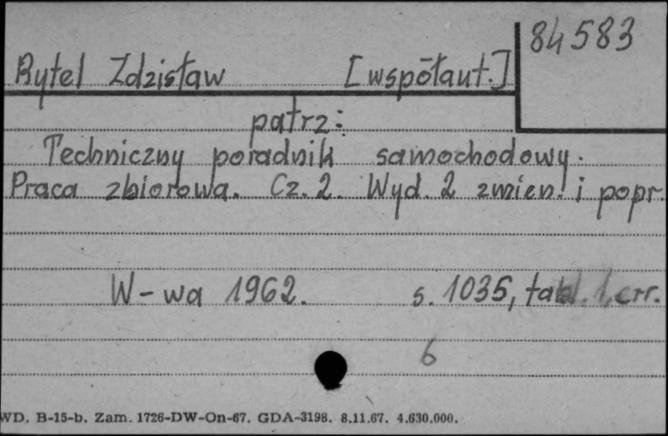 84583
Rytel Zdzisław [współaut.]
patrz:
Techniczny poradnik samochodowy.
Praca zbiorowa. Cz. 2. Wyd. 2 zmien. i popr.
W-wa 1962. s. 1035, tabl. 1, err.
6
WD. B-15-b. Zam. 1726-DW-On-67. GDA-3198. 8.11.67. 4.630.000.